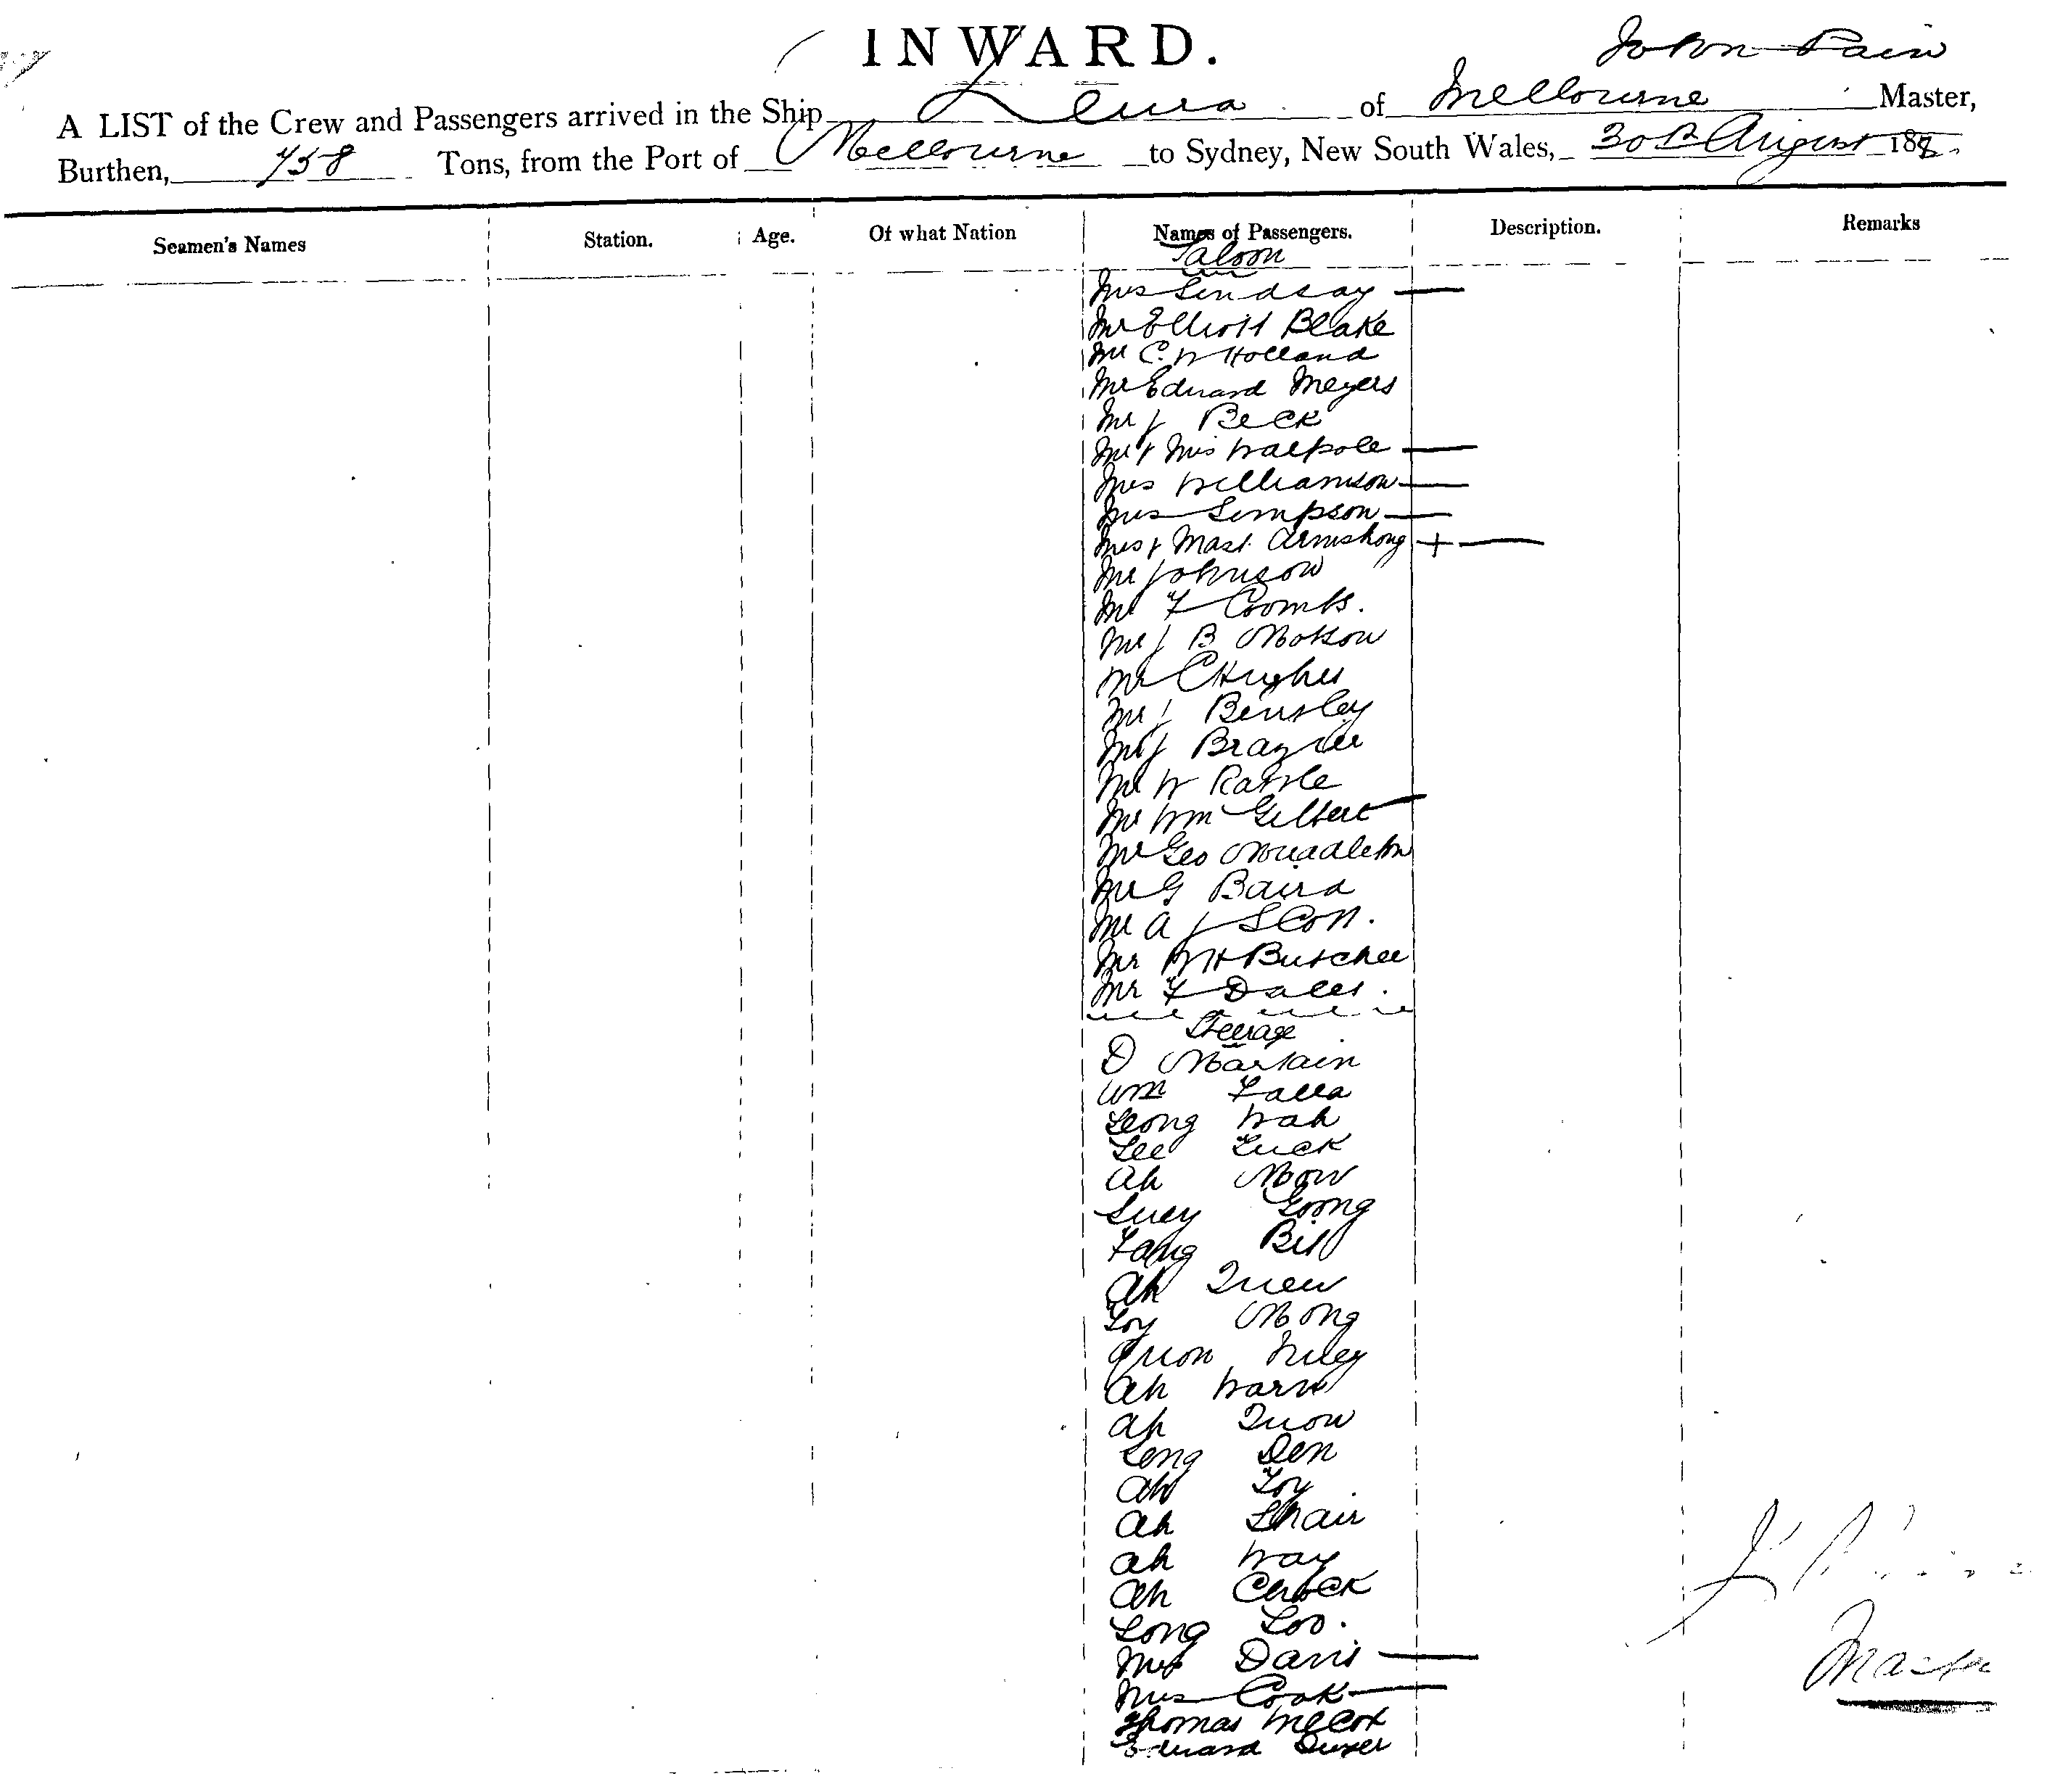 INWARD.
John Pain
A LIST of the Crew and Passengers arrived in the Ship Leura of Melbourne Master,
Burthen, 758 Tons, from the Port of Melbourne to Sydney, New South Wales, 30th August 188
Seamen's Names Station. Age. Of what Nation Names of Passengers. Description. Remarks
Saloon
Mrs Lindsay
Mr Elliott Blake
Mr C. W Holland
Mr Edward Meyers
Mr J Beck
Mr & Mrs Walpole
Mrs Williamson
Mrs Simpson
Mrs & Mast. Armstrong +
Mr Johnson
Mr F Coombs.
Mr J B
Mr C Hughes
Mr J Bensley
Mr J Brazier
Mr W
Mr Wm Gilbert
Mr Geo Middleton
Mr G Baird
Mr A J Scott.
Mr W H Butcher
Mr F Dales.
Steerage
D Martain
Wm Falla
Leong Wah
Lee Luck
Ah Mow
Suey Goong
Fang Bit
Ah Quew
Loy Mong
Quon
Ah Warn
Ah Quow
Leng Den
Ah Foy
Ah Shair
Ah Way
Ah Chock
Long Loo.
Mrs Davis
Mrs Cook
Thomas McCox
Edward Dwyer
Master